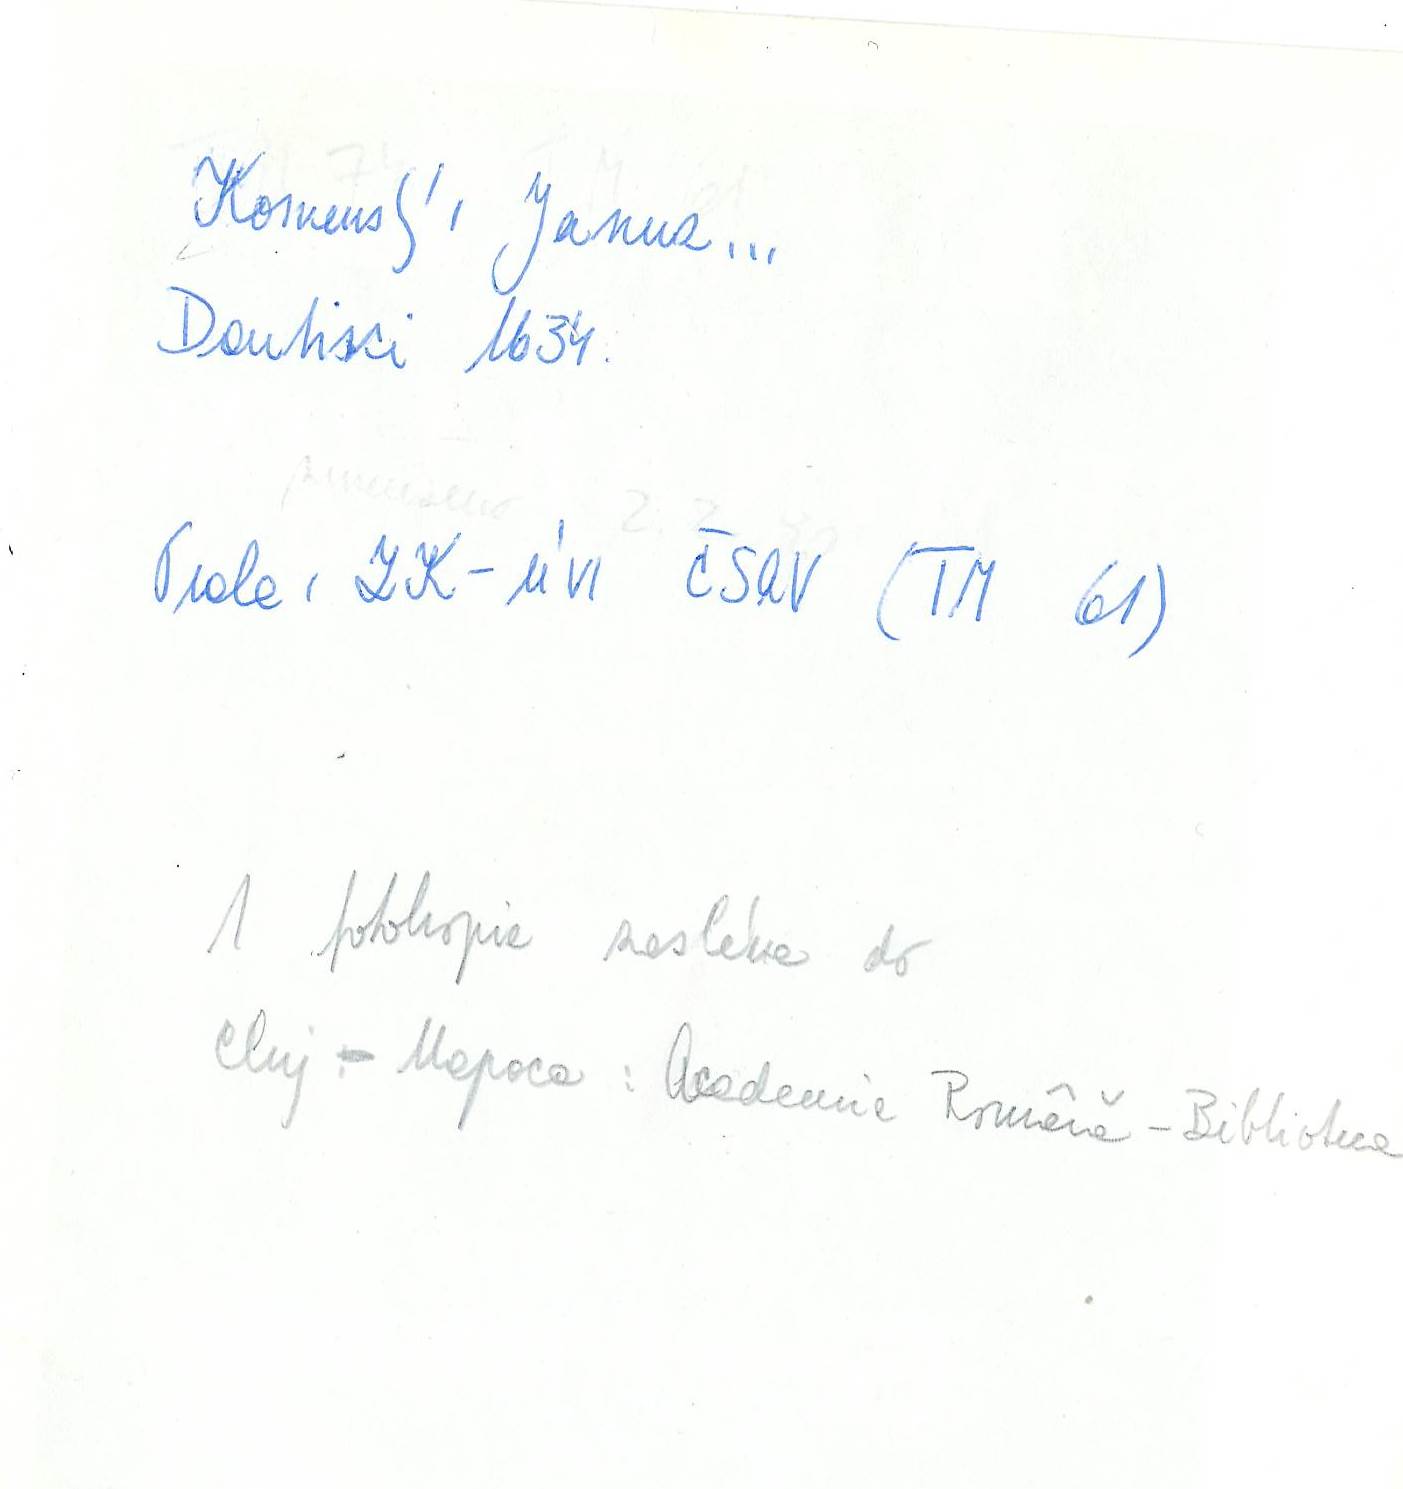 Komenský, Janua...
Dantisci 1634.
Praha, ZK-ÚVI ČSAV (TM 61)
1 fotokopie zaslána do
Cluj - Napoca : Academia Română - Biblioteca